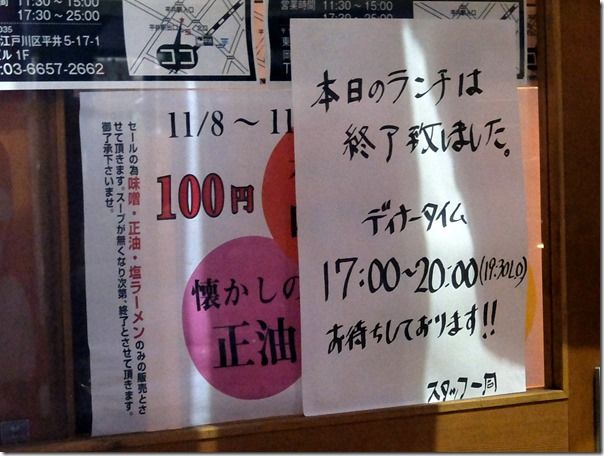 11:30～15:00
17:30～25:00
035
江戸川区平井5-17-1
1F
03-6657-2662
ココ
営業時間
11:30～15:00
17:30～
ココ
11/8～11
100円
懐かしの
正油
セールの為味噌・正油・塩ラーメンのみの販売とさ
せて頂きます。スープが無くなり次第、終了とさせて頂きます。
御了承下さいませ。
本日のランチは
終了致しました。
ディナータイム
17:00～20:00(19:30LO)
お待ちしております!!
スタッフ一同